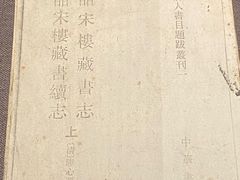 人書目題跋叢刊一
皕宋樓藏書志
皕宋樓藏書續志
上
〔清〕陸心
中華